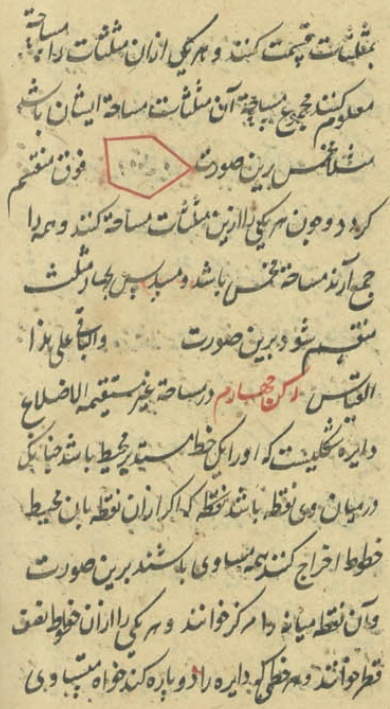 بمثلثات قسمت کنند و هر یکی ازان مثلثات را مساحة
معلوم کنند مجموع مساحة آن مثلثات مساحة ایشان باشد
مثلا مخمس برین صورت فوق منقسم
کردد و چون هر یکی را ازین مثلثات مساحة کنند و همه را
جمع آرند مساحة مخمس باشد و مسدس بچهار مثلث
منقسم شود برین صورت والباقی علی هذا
القیاس رکن چهارم در مساحة غیر مستقیمة الاضلاع
دایره شکلیست که او را یک خط مستدیر محیط باشد چنانکی
در میان وی نقطه باشد نقطه که اکر ازان نقطه بان محیط
خطوط اخراج کنند همه مساوی باشند برین صورت
و آن نقطه میانه را مرکز خوانند و هر یکی را ازان خطوط نصف
قطر خوانند و هر خطی که دایره را دو پاره کند خواه متساوی